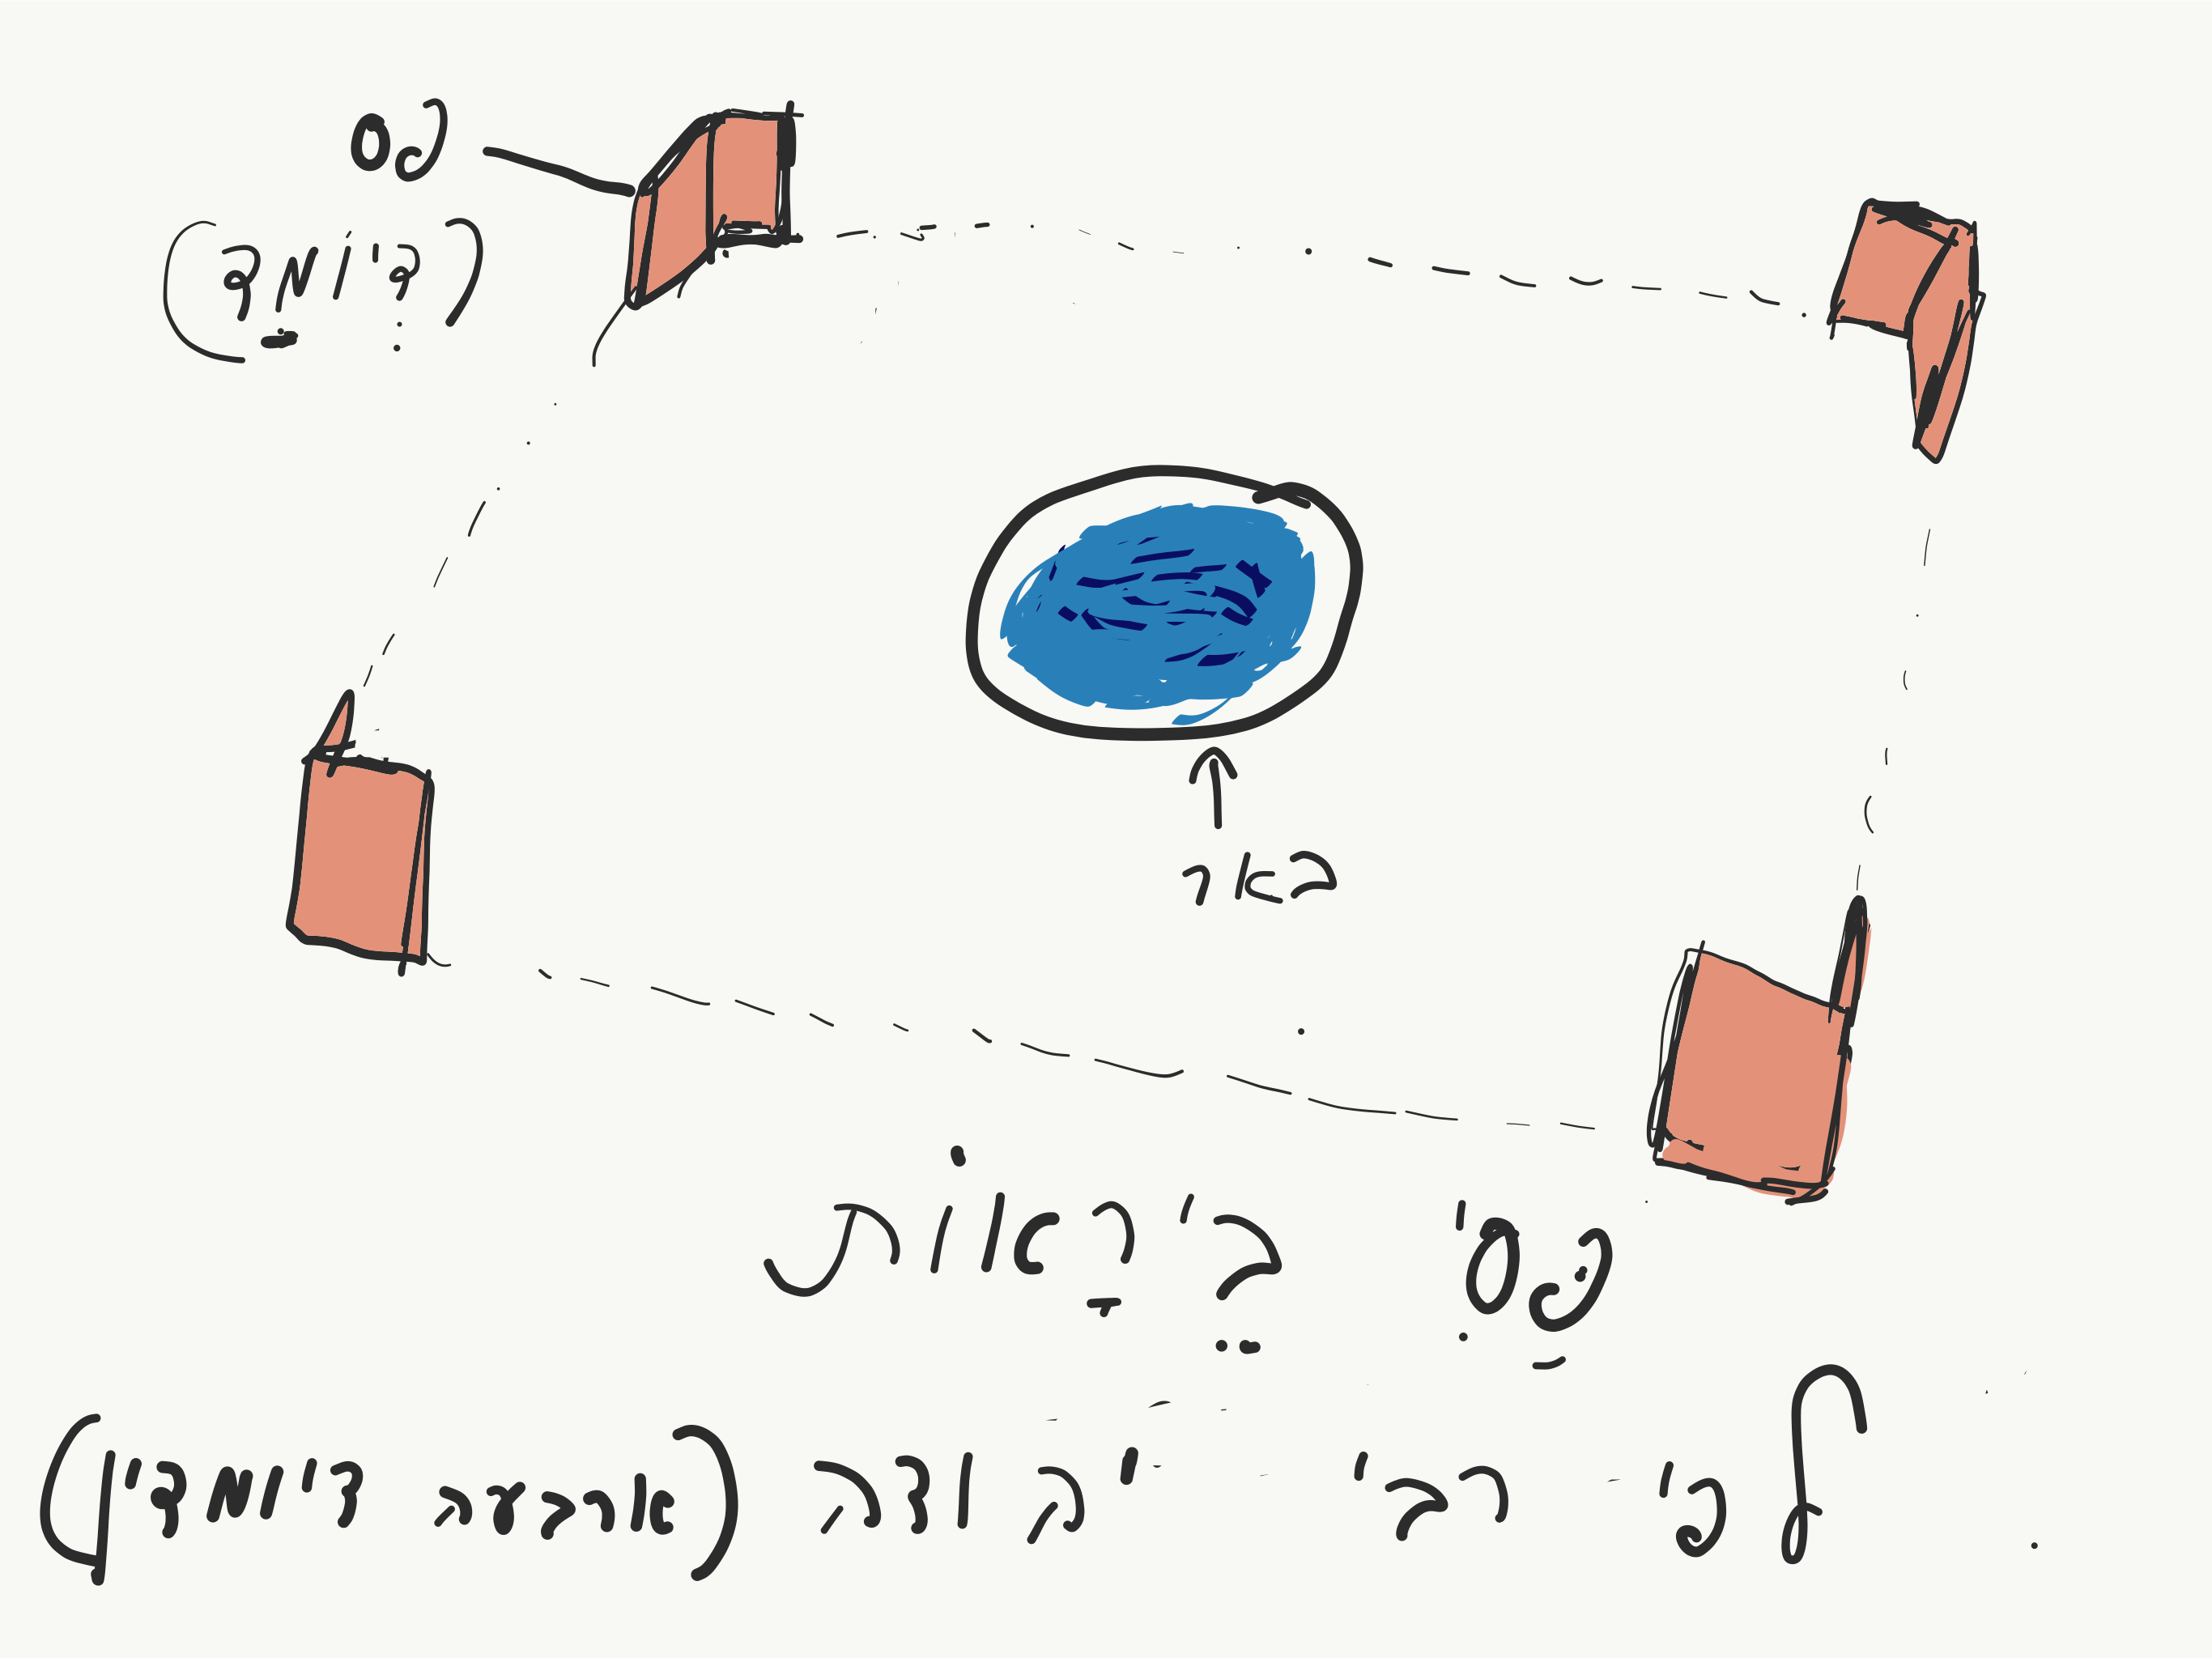 פס
(דְיוֹמַד)
באר
פַּסִי בֵירָאוֹת
לפי רבי יהודה (ארבעה דיומדין)